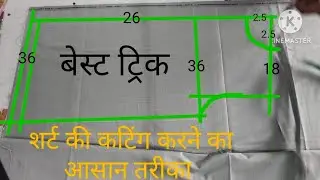 26
2.5
2.5
K
INEMASTER
36
बेस्ट ट्रिक
36
18
शर्ट की कटिंग करने का
आसान तरीका